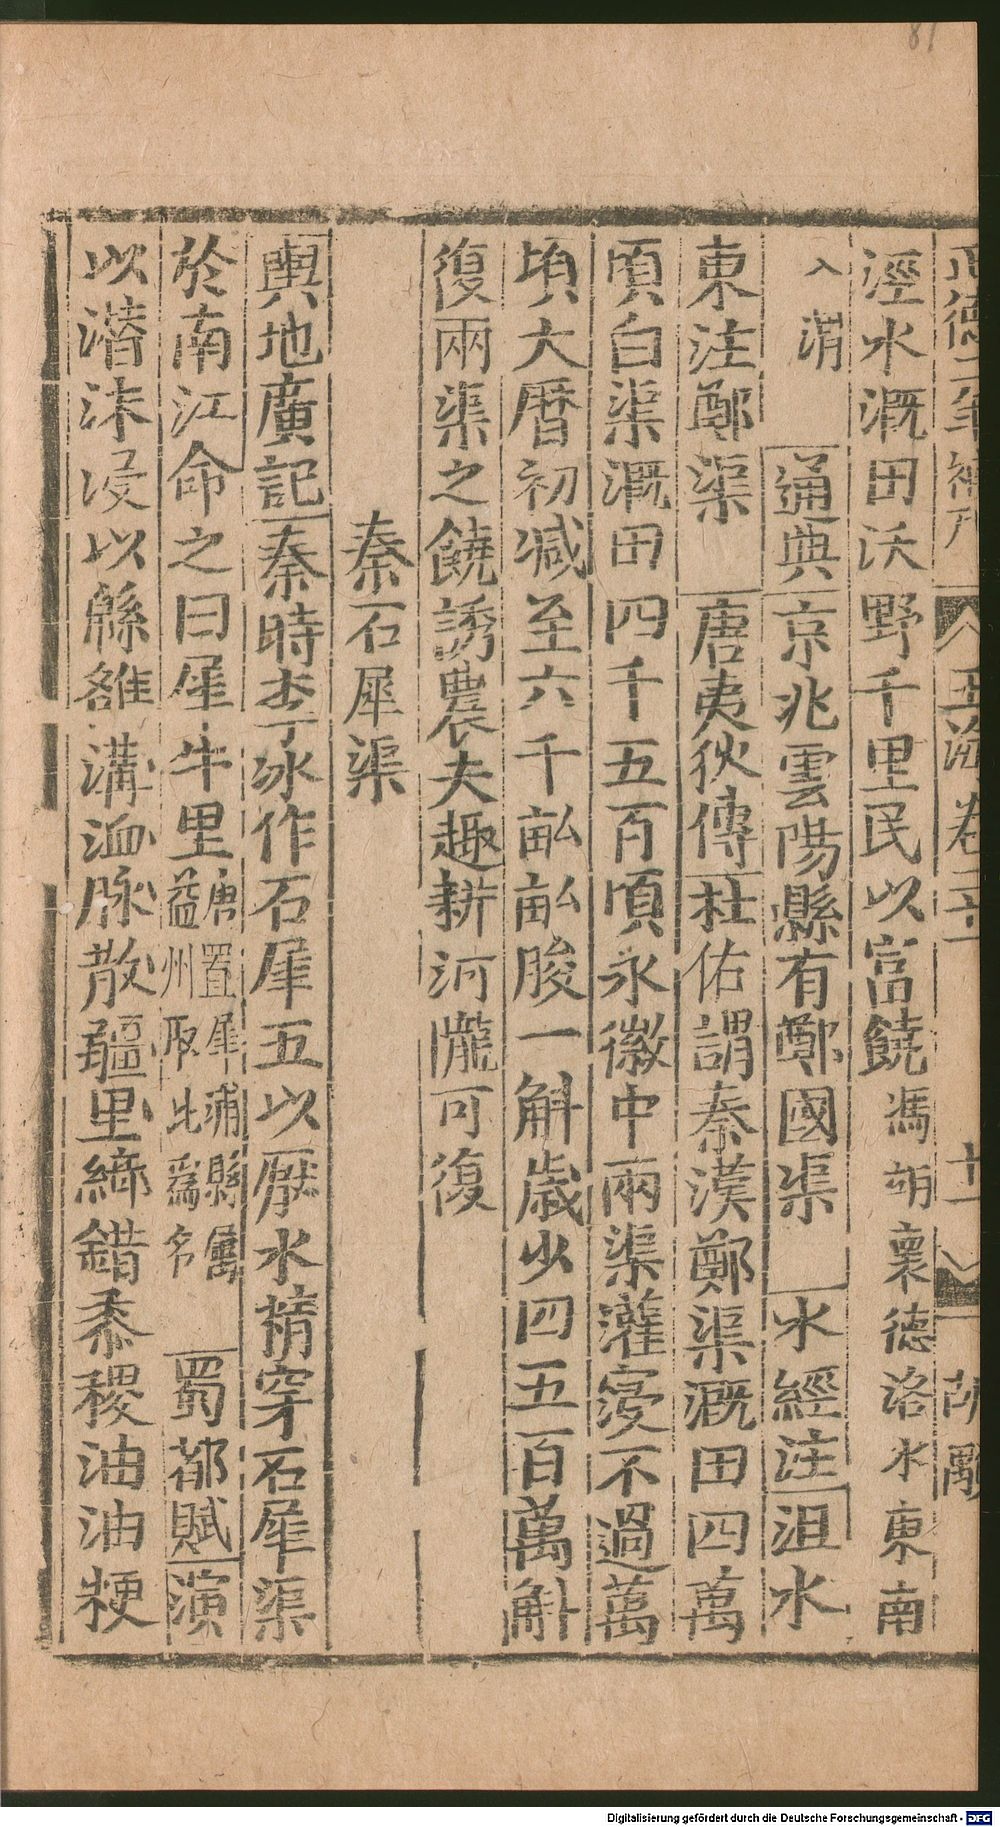 81
正德二年補刊 玉海卷二十一 十一
涇水溉田沃野千里民以富饒馮翊褱德洛水東南
入渭 通典京兆雲陽縣有鄭國渠 水經注沮水
東注鄭渠 唐夷狄傳杜佑謂秦漢鄭渠溉田四萬
頃白渠溉田四千五百頃永徽中兩渠灌寖不過萬
頃大曆初減至六千畝畝朘一斛歲少四五百萬斛
復兩渠之饒誘農夫趣耕河隴可復
秦石犀渠
輿地廣記秦時李冰作石犀五以厭水精穿石犀渠
於南江命之曰犀牛里唐置犀浦縣屬益州取此爲名 蜀都賦演
以潛沬浸以緜雒溝洫脉散疆里綺錯黍稷油油粳
Digitalisierung gefördert durch die Deutsche Forschungsgemeinschaft - DFG